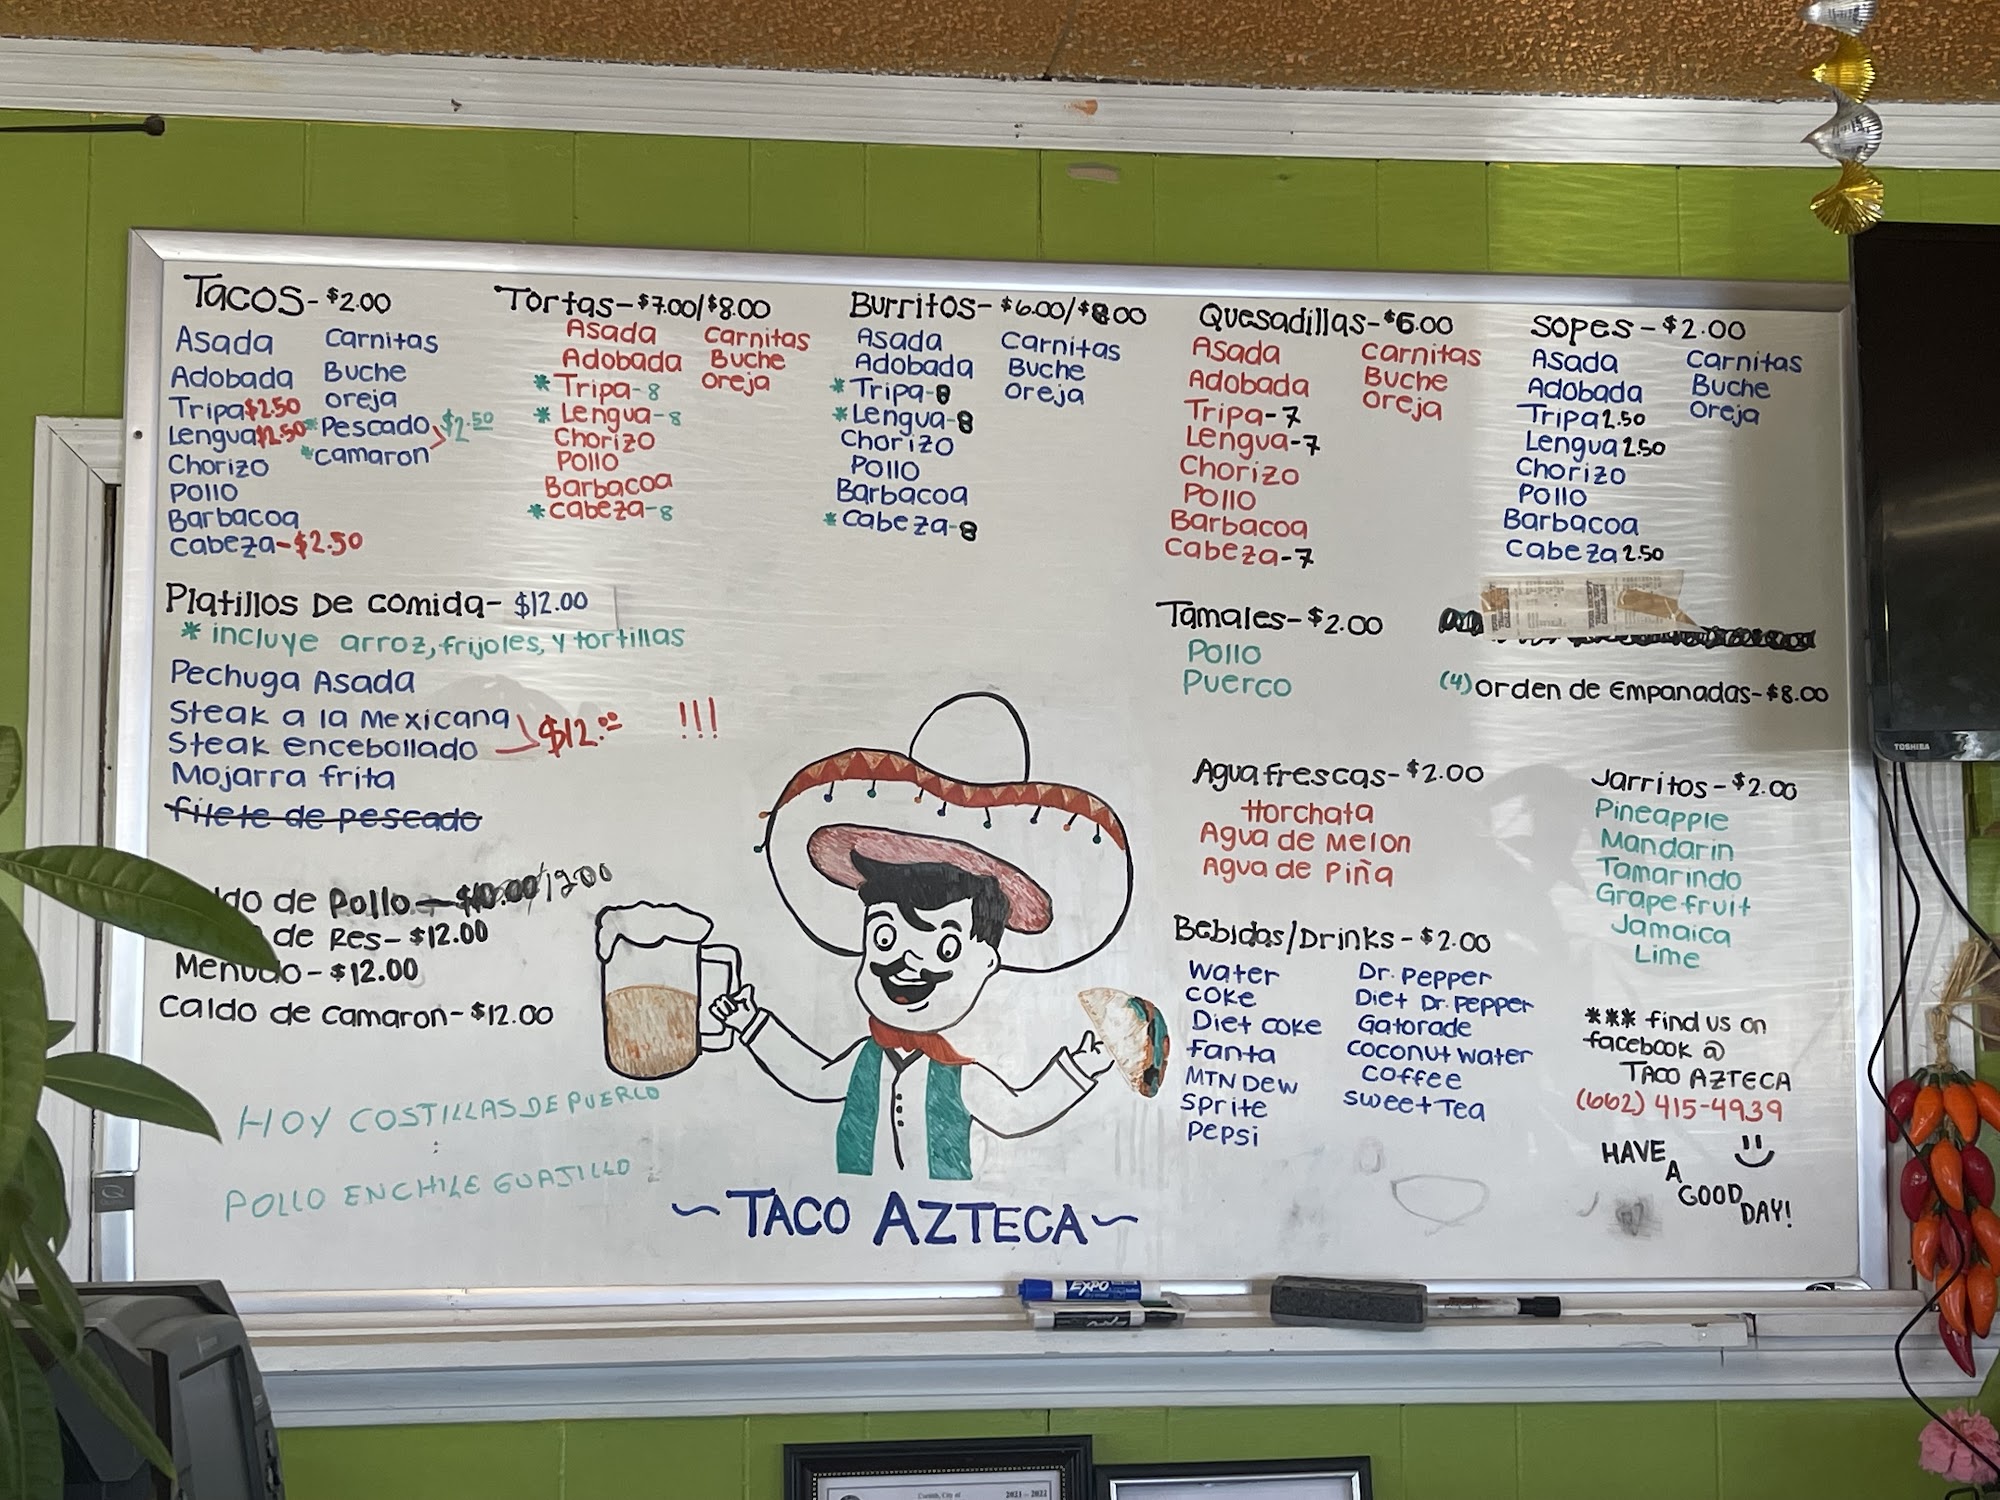 Tacos - $2.00
Asada Carnitas
Adobada Buche
Tripa $2.50 oreja
Lengua $2.50 *Pescado $2.50
Chorizo *camaron
Pollo
Barbacoa
Cabeza - $2.50
Tortas - $7.00/$8.00
Asada Carnitas
Adobada Buche
*Tripa - 8 oreja
*Lengua - 8
Chorizo
Pollo
Barbacoa
*Cabeza - 8
Burritos - $6.00/$8.00
Asada Carnitas
Adobada Buche
*Tripa - 8 oreja
*Lengua - 8
Chorizo
Pollo
Barbacoa
*Cabeza - 8
Quesadillas - $6.00
Asada Carnitas
Adobada Buche
Tripa - 7 oreja
Lengua - 7
Chorizo
Pollo
Barbacoa
Cabeza - 7
Sopes - $2.00
Asada Carnitas
Adobada Buche
Tripa 2.50 oreja
Lengua 2.50
Chorizo
Pollo
Barbacoa
Cabeza 2.50
Platillos De comida - $12.00
* incluye arroz, frijoles, y tortillas
Pechuga Asada
Steak a la Mexicana $12.00 !!!
Steak encebollado
Mojarra frita
filete de pescado
do de Pollo - $10.00/12.00
de Res - $12.00
Menudo - $12.00
Caldo de camaron - $12.00
HOY COSTILLAS DE PUERCO
POLLO EN CHILE GUAJILLO
~TACO AZTECA~
Tamales - $2.00
Pollo
Puerco
(4) orden de Empanadas - $8.00
Agua frescas - $2.00
Horchata
Agua de Melon
Agua de Piña
Jarritos - $2.00
Pineapple
Mandarin
Tamarindo
Grapefruit
Jamaica
Lime
Bebidas/Drinks - $2.00
Water Dr. Pepper
Coke Diet Dr. Pepper
Diet Coke Gatorade
Fanta Coconut Water
MTN Dew Coffee
Sprite Sweet Tea
Pepsi
*** find us on
facebook @
TACO AZTECA
(662) 415-4939
HAVE
A
GOOD
DAY!
TOSHIBA
EXPO
Corinth, City of 2021 - 2022